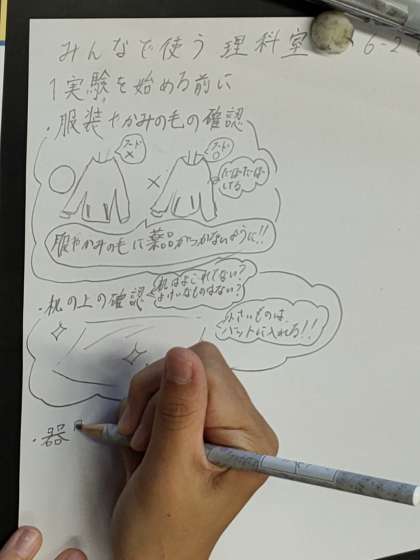 みんなで使う理科室 6-2
1実験を始める前に
・服装やかみの毛の確認
フード
×
フード
○
○
×
だぼだぼ
してる
服やかみの毛に薬品がつかないように!!
・机の上の確認
机はよごれてない?
よけいなものはない?
小さいものは、
バットに入れる!!
・器